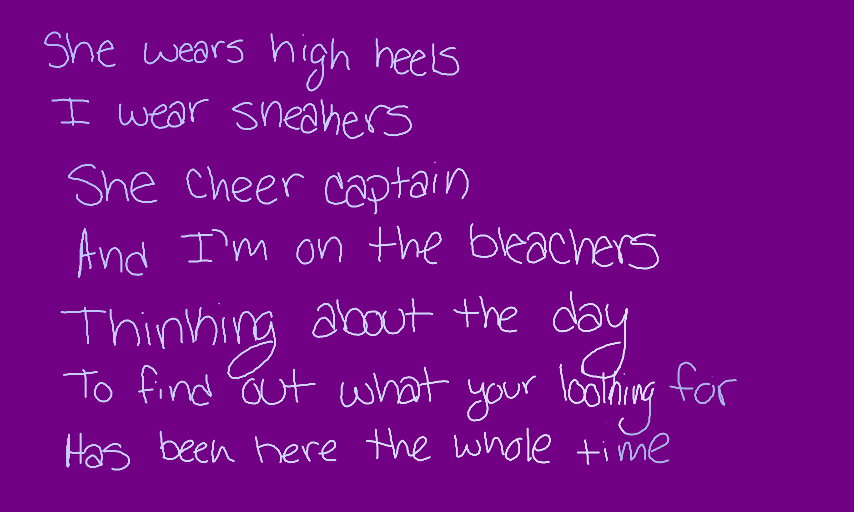 She wears high heels
I wear sneakers
She cheer captain
And I'm on the bleachers
Thinking about the day
To find out what your loothing for
Has been here the whole time